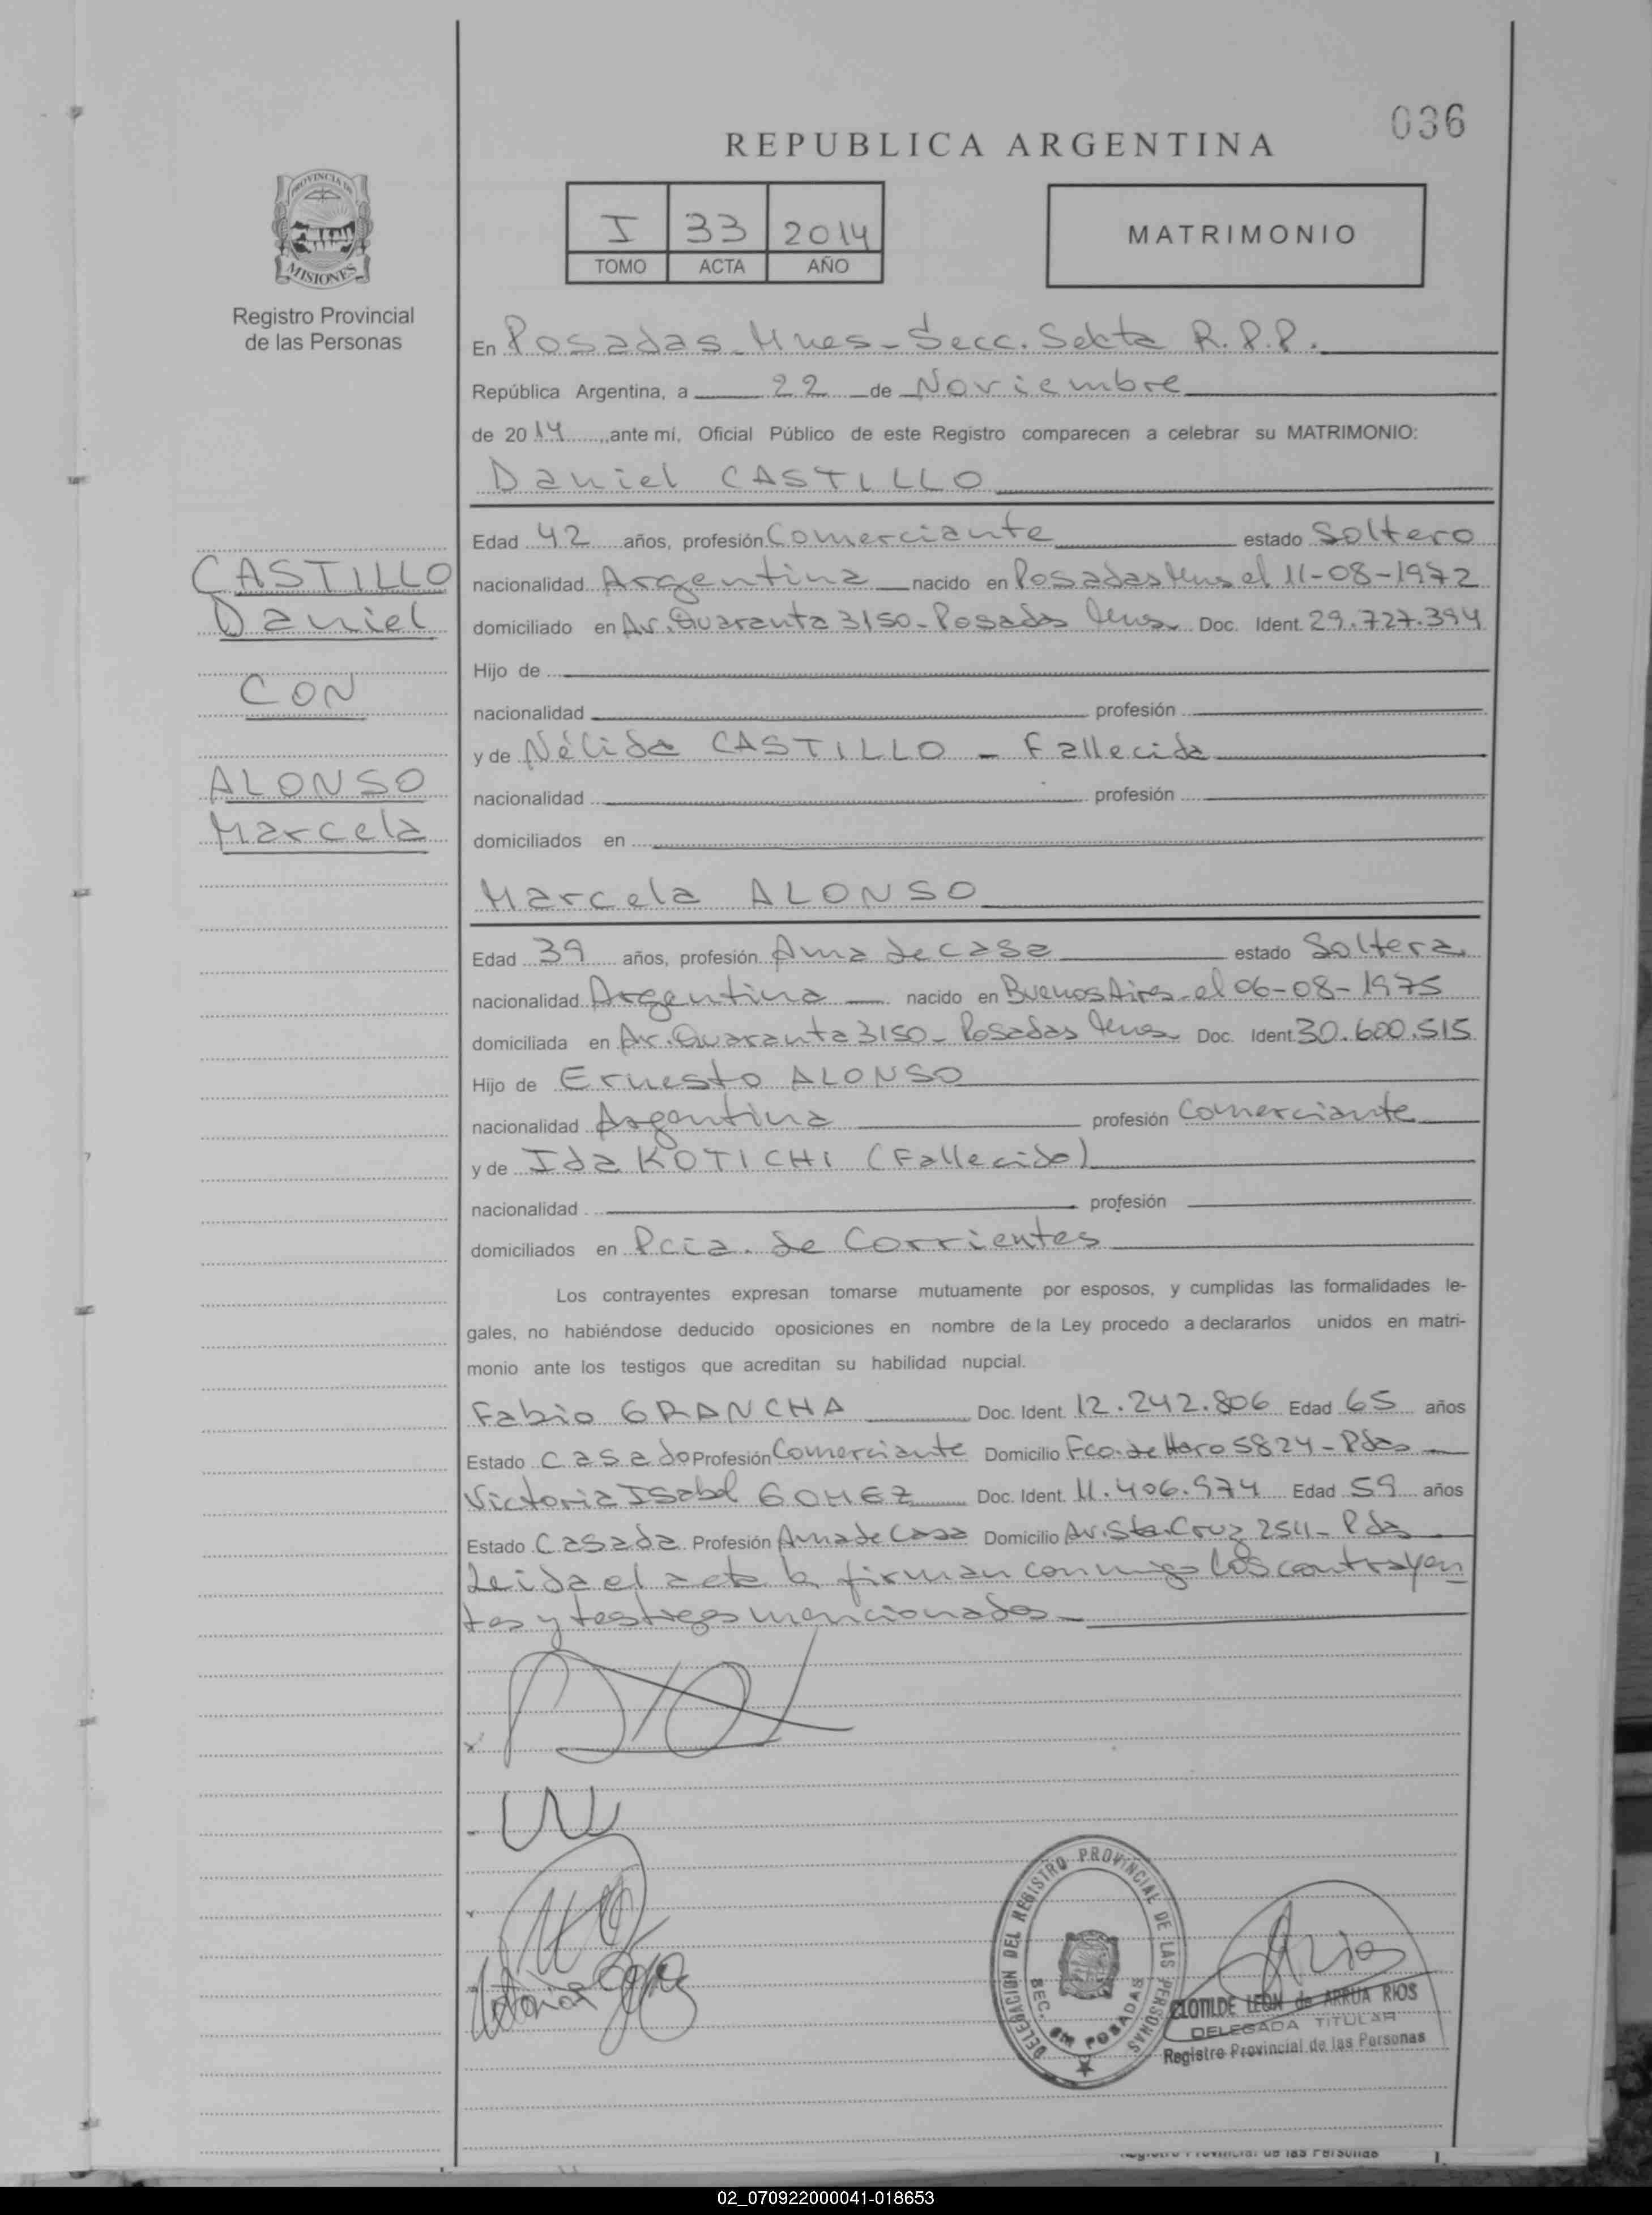 036
REPUBLICA ARGENTINA
I 33 2014
TOMO ACTA AÑO
MATRIMONIO
PROVINCIA DE
MISIONES
Registro Provincial
de las Personas
En Posadas - Mnes - Secc. Sexta R.P.P.
República Argentina, a 22 de Noviembre
de 2014, ante mí, Oficial Público de este Registro comparecen a celebrar su MATRIMONIO:
Daniel CASTILLO
CASTILLO
Daniel
CON
ALONSO
Marcela
Edad 42 años, profesión Comerciante estado Soltero
nacionalidad Argentina nacido en Posadas Mnes el 11-08-1972
domiciliado en Av. Quaranta 3150 - Posadas Mnes Doc. Ident. 29.727.394
Hijo de
nacionalidad profesión
y de Nélida CASTILLO - Fallecida
nacionalidad profesión
domiciliados en
Marcela ALONSO
Edad 39 años, profesión Ama de casa estado Soltera
nacionalidad Argentina nacido en Buenos Aires - el 06-08-1975
domiciliada en Av. Quaranta 3150 - Posadas Mnes Doc. Ident. 30.600.515
Hijo de Ernesto ALONSO
nacionalidad Argentina profesión Comerciante
y de Ida KOTICHI (Fallecida)
nacionalidad profesión
domiciliados en Pcia. de Corrientes
Los contrayentes expresan tomarse mutuamente por esposos, y cumplidas las formalidades le-
gales, no habiéndose deducido oposiciones en nombre de la Ley procedo a declararlos unidos en matri-
monio ante los testigos que acreditan su habilidad nupcial.
Fabio GRANCHA Doc. Ident. 12.242.806 Edad 65 años
Estado Casado Profesión Comerciante Domicilio Fco. de Haro 5824 - Pdas
Victoria Isabel GOMEZ Doc. Ident. 11.406.974 Edad 59 años
Estado Casada Profesión Ama de Casa Domicilio Av. Sta. Cruz 2511 - Pdas
Leida el acta la firman conmigo los contrayen
tes y testigos mencionados
DELEGACION DEL REGISTRO PROVINCIAL DE LAS PERSONAS
SEC. 6ta POSADAS
CLOTILDE LEON de ARRUA RIOS
DELEGADA TITULAR
Registro Provincial de las Personas
Registro Provincial de las Personas
02_070922000041-018653